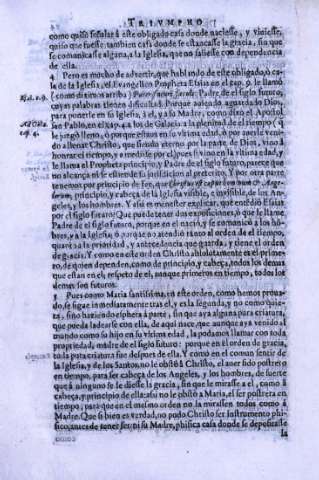 TRIVMPHO
como quiso señalar à este obligado casa donde naciesse, y viniesse,
quiso que fuesse tambien casa donde se estancasse la gracia, sin que
se comunicasse alguna, à la Iglesia, que no saliesse con dependencia
de ella.
4 Pero es mucho de advertir, que hablando de este obligado, ò ca-
sa de la Iglesia, el Evangelico Propheta Esaias en el cap. 9. le llamò
(como diximos arriba) Pater futuri sæculi: Padre de el siglo futuro,
cuyas palabras tienen dificultad. Porque aviendo aguardado Dios,
para ponerle en su Iglesia à el, y à su Madre, como dixo el Apostol
San Pablo, en el cap. 4. à los Galatas à la plenitud de el tiempo (
le juzgò lleno, ò por que estaua en su vltima edad, ò por auerle veni-
do à llenar Christo, que siendo eterno por la parte de Dios, vino à
honrar el tiempo, y à medirse por el) pues si vino en la vltima edad, y
le llama el Propheta principio, y Padre de el siglo futuro, parece que
no alcança ni se estiende su jurisdiccion al preterito. Y por otra parte,
tenemos por principio de Fee, que Christus est caput hominum & Ange-
lorum, principio, y cabeça de la Iglesia visible, è invisible, de los An-
geles, y los hombres. Y assi es menester explicar, què entendiò Esaias
por el siglo futuro? Que puede tener dos exposiciones, ò que le llama
Padre de el siglo futuro, porque en el naciò, y se comunicò à los hom-
bres, y à la Iglesia, ò porque no atendiò tanto al orden de el tiempo,
quanto à la prioridad, y antecedencia que guarda, y tiene el orden
de gracia. Y como en este orden Christo absolutamente es el prime-
ro, de quien dependen, como de principio, y cabeça, todos los demas
que estan en el, respecto de el, aunque primeros en tiempo, todos los
demas son futuros.
5 Pues como Maria santissima, en este orden, como hemos proua-
do, se sigue inmediatamente tras el, y es la segunda, y no como quie-
ra, sino haziendo esphera à parte, sin que aya alguna pura criatura,
que pueda ladearse con ella, de aqui nace, que aunque aya venido al
mundo como su hijo en su vltima edad, la podamos llamar con toda
propriedad, madre de el siglo futuro: porque en el orden de gracia,
toda pura criatura fue despues de ella. Y como en el comun sentir de
la Iglesia, y de los Santos, no le obstò à Christo, el auer sido postrero
en tiempo, para ser cabeça de los Angeles, y los hombres, de suerte
que à ninguno se le diesse la gracia, sin que le mirasse à el, como à
cabeça, y principio de ella: assi no le obstò à Maria, el ser postrera en
tiempo, para que en el mesmo orden no la mirassen todos como à
Madre. Que si bien es verdad, no pudo Christo ser instrumento phi-
sico, antes de tener ser; ni su Madre, phisica casa donde se depositasse
la
Esai. c. 9.
Ad Gala.
cap. 4.